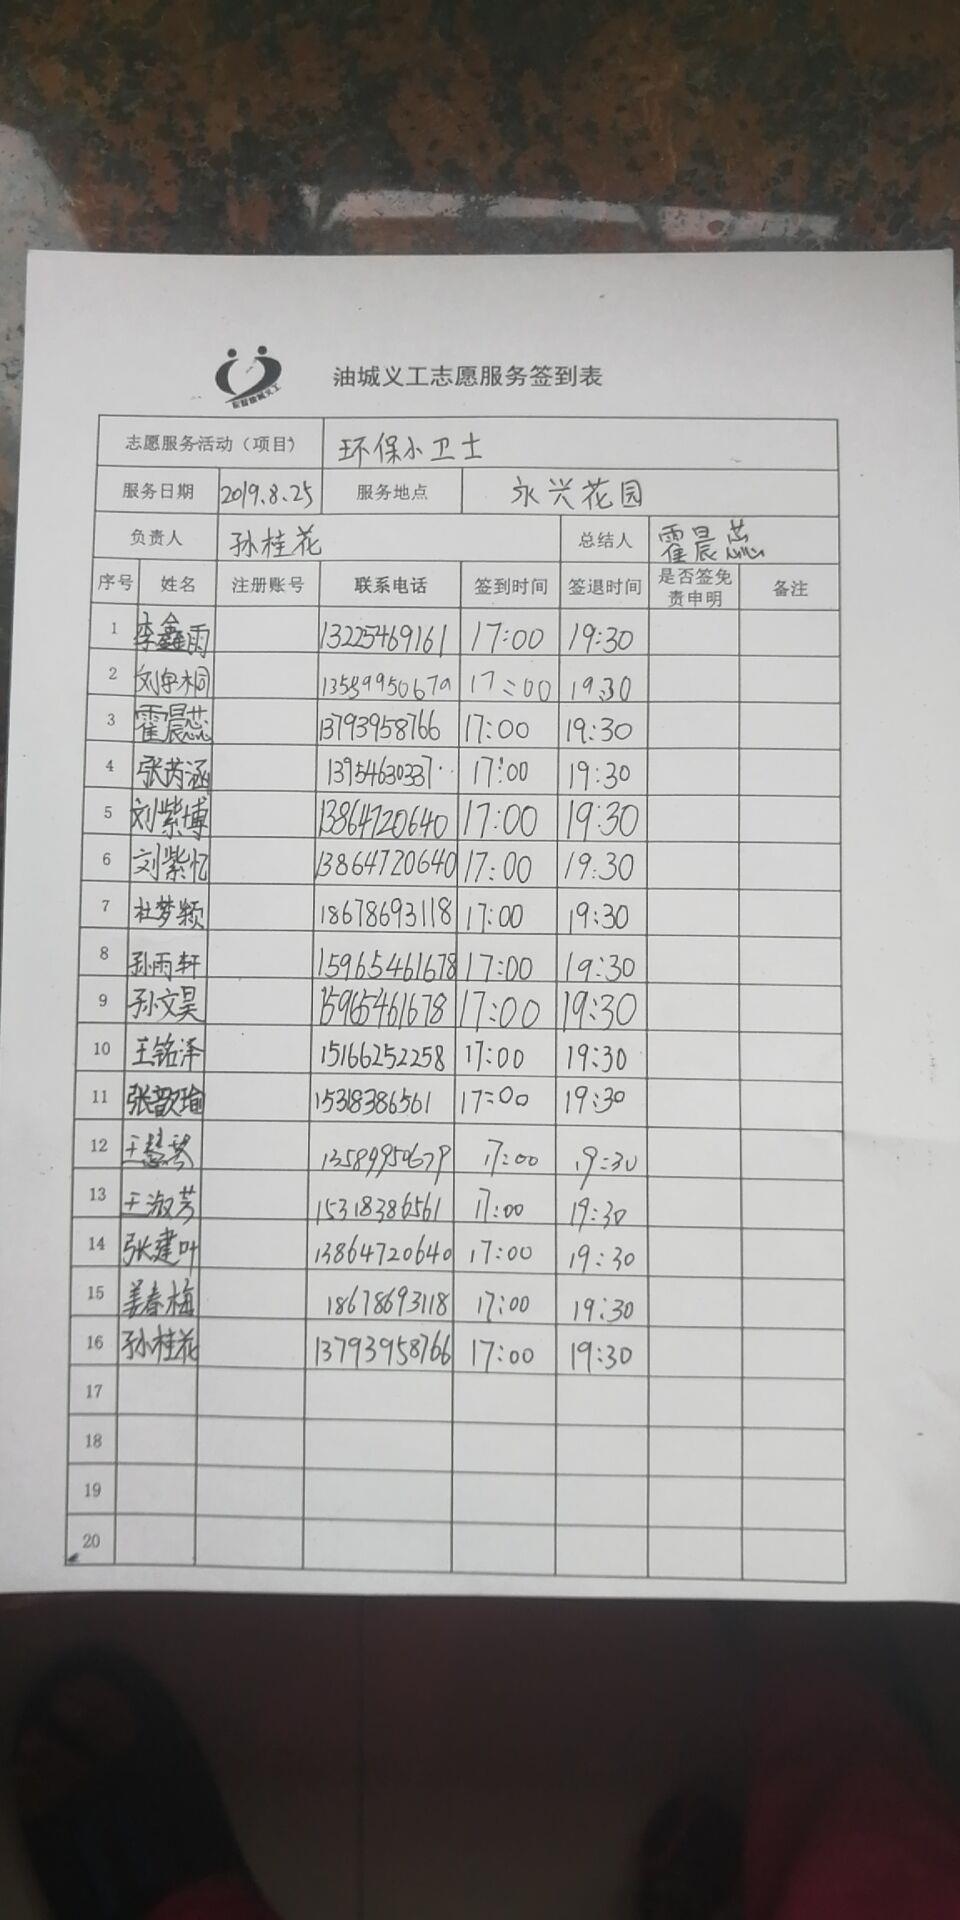 东营油城义工
油城义工志愿服务签到表
志愿服务活动（项目） 环保小卫士
服务日期 2019.8.25 服务地点 永兴花园
负责人 孙桂花 总结人 霍晨蕊
序号 姓名 注册账号 联系电话 签到时间 签退时间 是否签免责申明 备注
1 李鑫雨 13225469161 17:00 19:30
2 刘宇桐 13589950679 17:00 19:30
3 霍晨蕊 13793958766 17:00 19:30
4 张芮涵 1395463033 17:00 19:30
5 刘紫博 13864720640 17:00 19:30
6 刘紫忆 13864720640 17:00 19:30
7 杜梦颖 18678693118 17:00 19:30
8 孙雨轩 15965461678 17:00 19:30
9 孙文昊 15965461678 17:00 19:30
10 王铭泽 15166252258 17:00 19:30
11 张歆瑜 15318386561 17:00 19:30
12 王慧琴 13589950679 17:00 19:30
13 王淑芳 15318386561 17:00 19:30
14 张建叶 13864720640 17:00 19:30
15 姜春梅 18678693118 17:00 19:30
16 孙桂花 13793958766 17:00 19:30
17
18
19
20